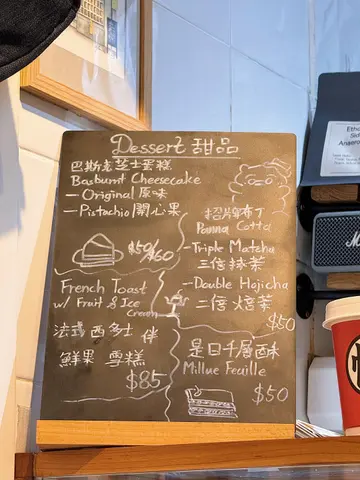 Dessert 甜品
巴斯克芝士蛋糕
Basburnt Cheesecake
— Original 原味
— Pistachio 開心果
$50/$60
招牌奶布丁
Panna Cotta
— Triple Matcha
三倍抹茶
— Double Hojicha
二倍焙茶
$50
French Toast
w/ Fruit & Ice
Cream
法式西多士 伴
鮮果 雪糕
$85
是日千層酥
Millue Feuille
$50
MARSHALL